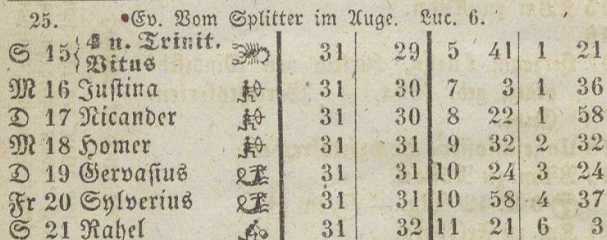 25. Ev. Vom Splitter im Auge. Luc. 6.
S 15 { 4 n. Trinit. Vitus 31 29 5 41 1 21
M 16 Juſtina 31 30 7 3 1 36
D 17 Nicander 31 30 8 22 1 58
M 18 Homer 31 31 9 32 2 32
D 19 Gervaſius 31 31 10 24 3 24
Fr 20 Sylverius 31 31 10 58 4 37
S 21 Rahel 31 32 11 21 6 3